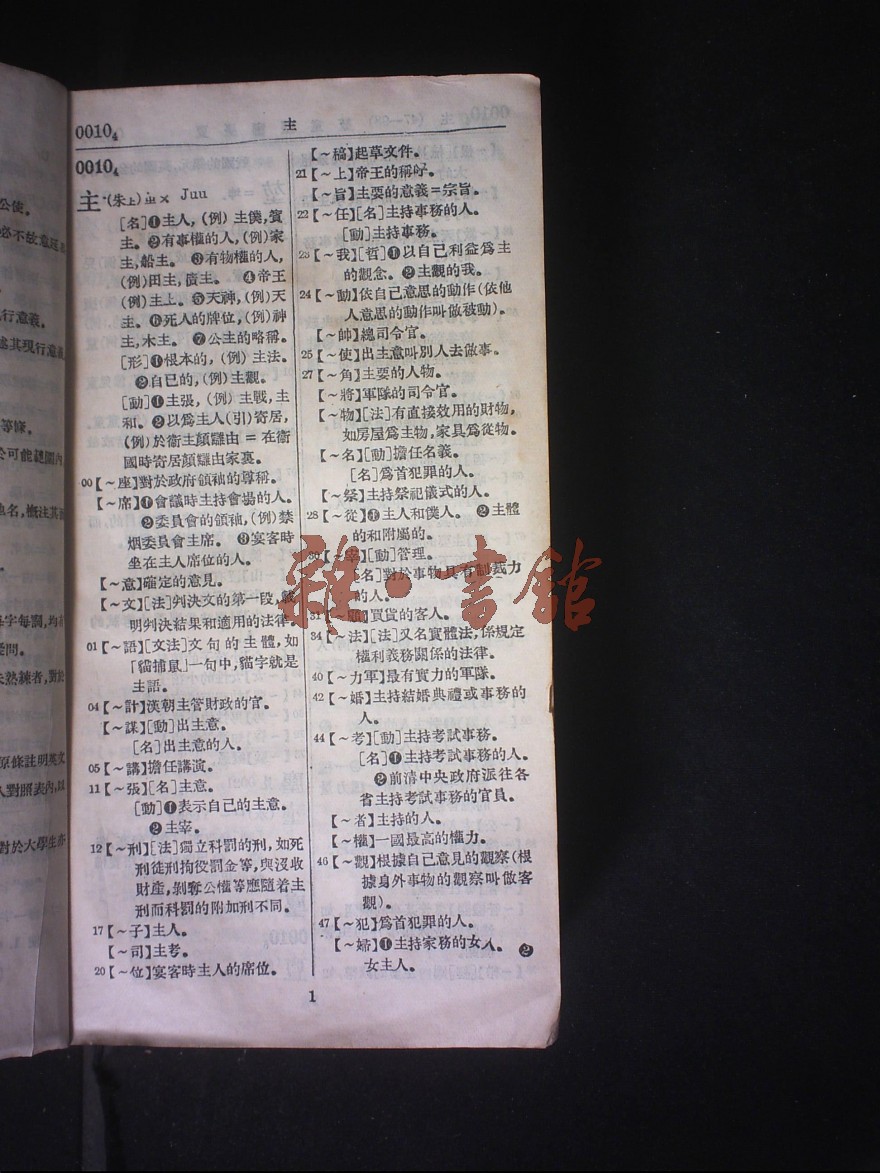 公使。
必不故意
行意義。
其現行意義
等條。
於可能範圍內
地名，概注其
每字每詞，均
疑問。
未熟練者，對於
原條註明英文
人對照表內，以
對於大學生亦
0010₄ 主
0010₄
主 (朱上) ㄓㄨ Juu
[名]❶主人，(例)主僕，賓
主。❷有事權的人，(例)家
主，船主。❸有物權的人，
(例)田主，廣主。❹帝王
(例)主上。❺天神，(例)天
主。❻死人的牌位，(例)神
主，木主。❼公主的略稱。
[形]❶根本的，(例)主法。
❷自己的，(例)主觀。
[動]❶主張，(例)主戰，主
和。❷以爲主人(引)寄居，
(例)於衞主顏讎由＝在衞
國時寄居顏讎由家裏。
00【～座】對於政府領袖的尊稱。
【～席】❶會議時主持會場的人。
❷委員會的領袖，(例)禁
烟委員會主席。❸宴客時
坐在主人席位的人。
【～意】確定的意見。
【～文】[法]判決文的第一段，
明判決結果和適用的法律。
01【～語】[文法]文句的主體，如
「貓捕鼠」一句中，貓字就是
主語。
04【～計】漢朝主管財政的官。
【～謀】[動]出主意。
[名]出主意的人。
05【～講】擔任講演。
11【～張】[名]主意。
[動]❶表示自己的主意。
❷主宰。
12【～刑】[法]獨立科罰的刑，如死
刑徒刑拘役罰金等，與沒收
財產，剝奪公權等應隨着主
刑而科罰的附加刑不同。
17【～子】主人。
【～司】主考。
20【～位】宴客時主人的席位。
【～稿】起草文件。
21【～上】帝王的稱呼。
【～旨】主要的意義＝宗旨。
22【～任】[名]主持事務的人。
[動]主持事務。
23【～我】[哲]❶以自己利益爲主
的觀念。❷主觀的我。
24【～動】依自己意思的動作(依他
人意思的動作叫做被動)。
【～帥】總司令官。
25【～使】出主意叫別人去做事。
27【～角】主要的人物。
【～將】軍隊的司令官。
【～物】[法]有直接效用的財物，
如房屋爲主物，家具爲從物。
【～名】[動]擔任名義。
[名]爲首犯罪的人。
【～祭】主持祭祀儀式的人。
28【～從】❶主人和僕人。❷主體
的和附屬的。
30【～宰】[動]管理。
[名]對於事物具有制裁力
的人。
31【～顧】買貨的客人。
34【～法】[法]又名實體法，係規定
權利義務關係的法律。
40【～力軍】最有實力的軍隊。
42【～婚】主持結婚典禮或事務的
人。
44【～考】[動]主持考試事務。
[名]❶主持考試事務的人。
❷前清中央政府派往各
省主持考試事務的官員。
【～者】主持的人。
【～權】一國最高的權力。
46【～觀】根據自己意見的觀察(根
據身外事物的觀察叫做客
觀)。
47【～犯】爲首犯罪的人。
【～婦】❶主持家務的女人。❷
女主人。
1
雜·書館